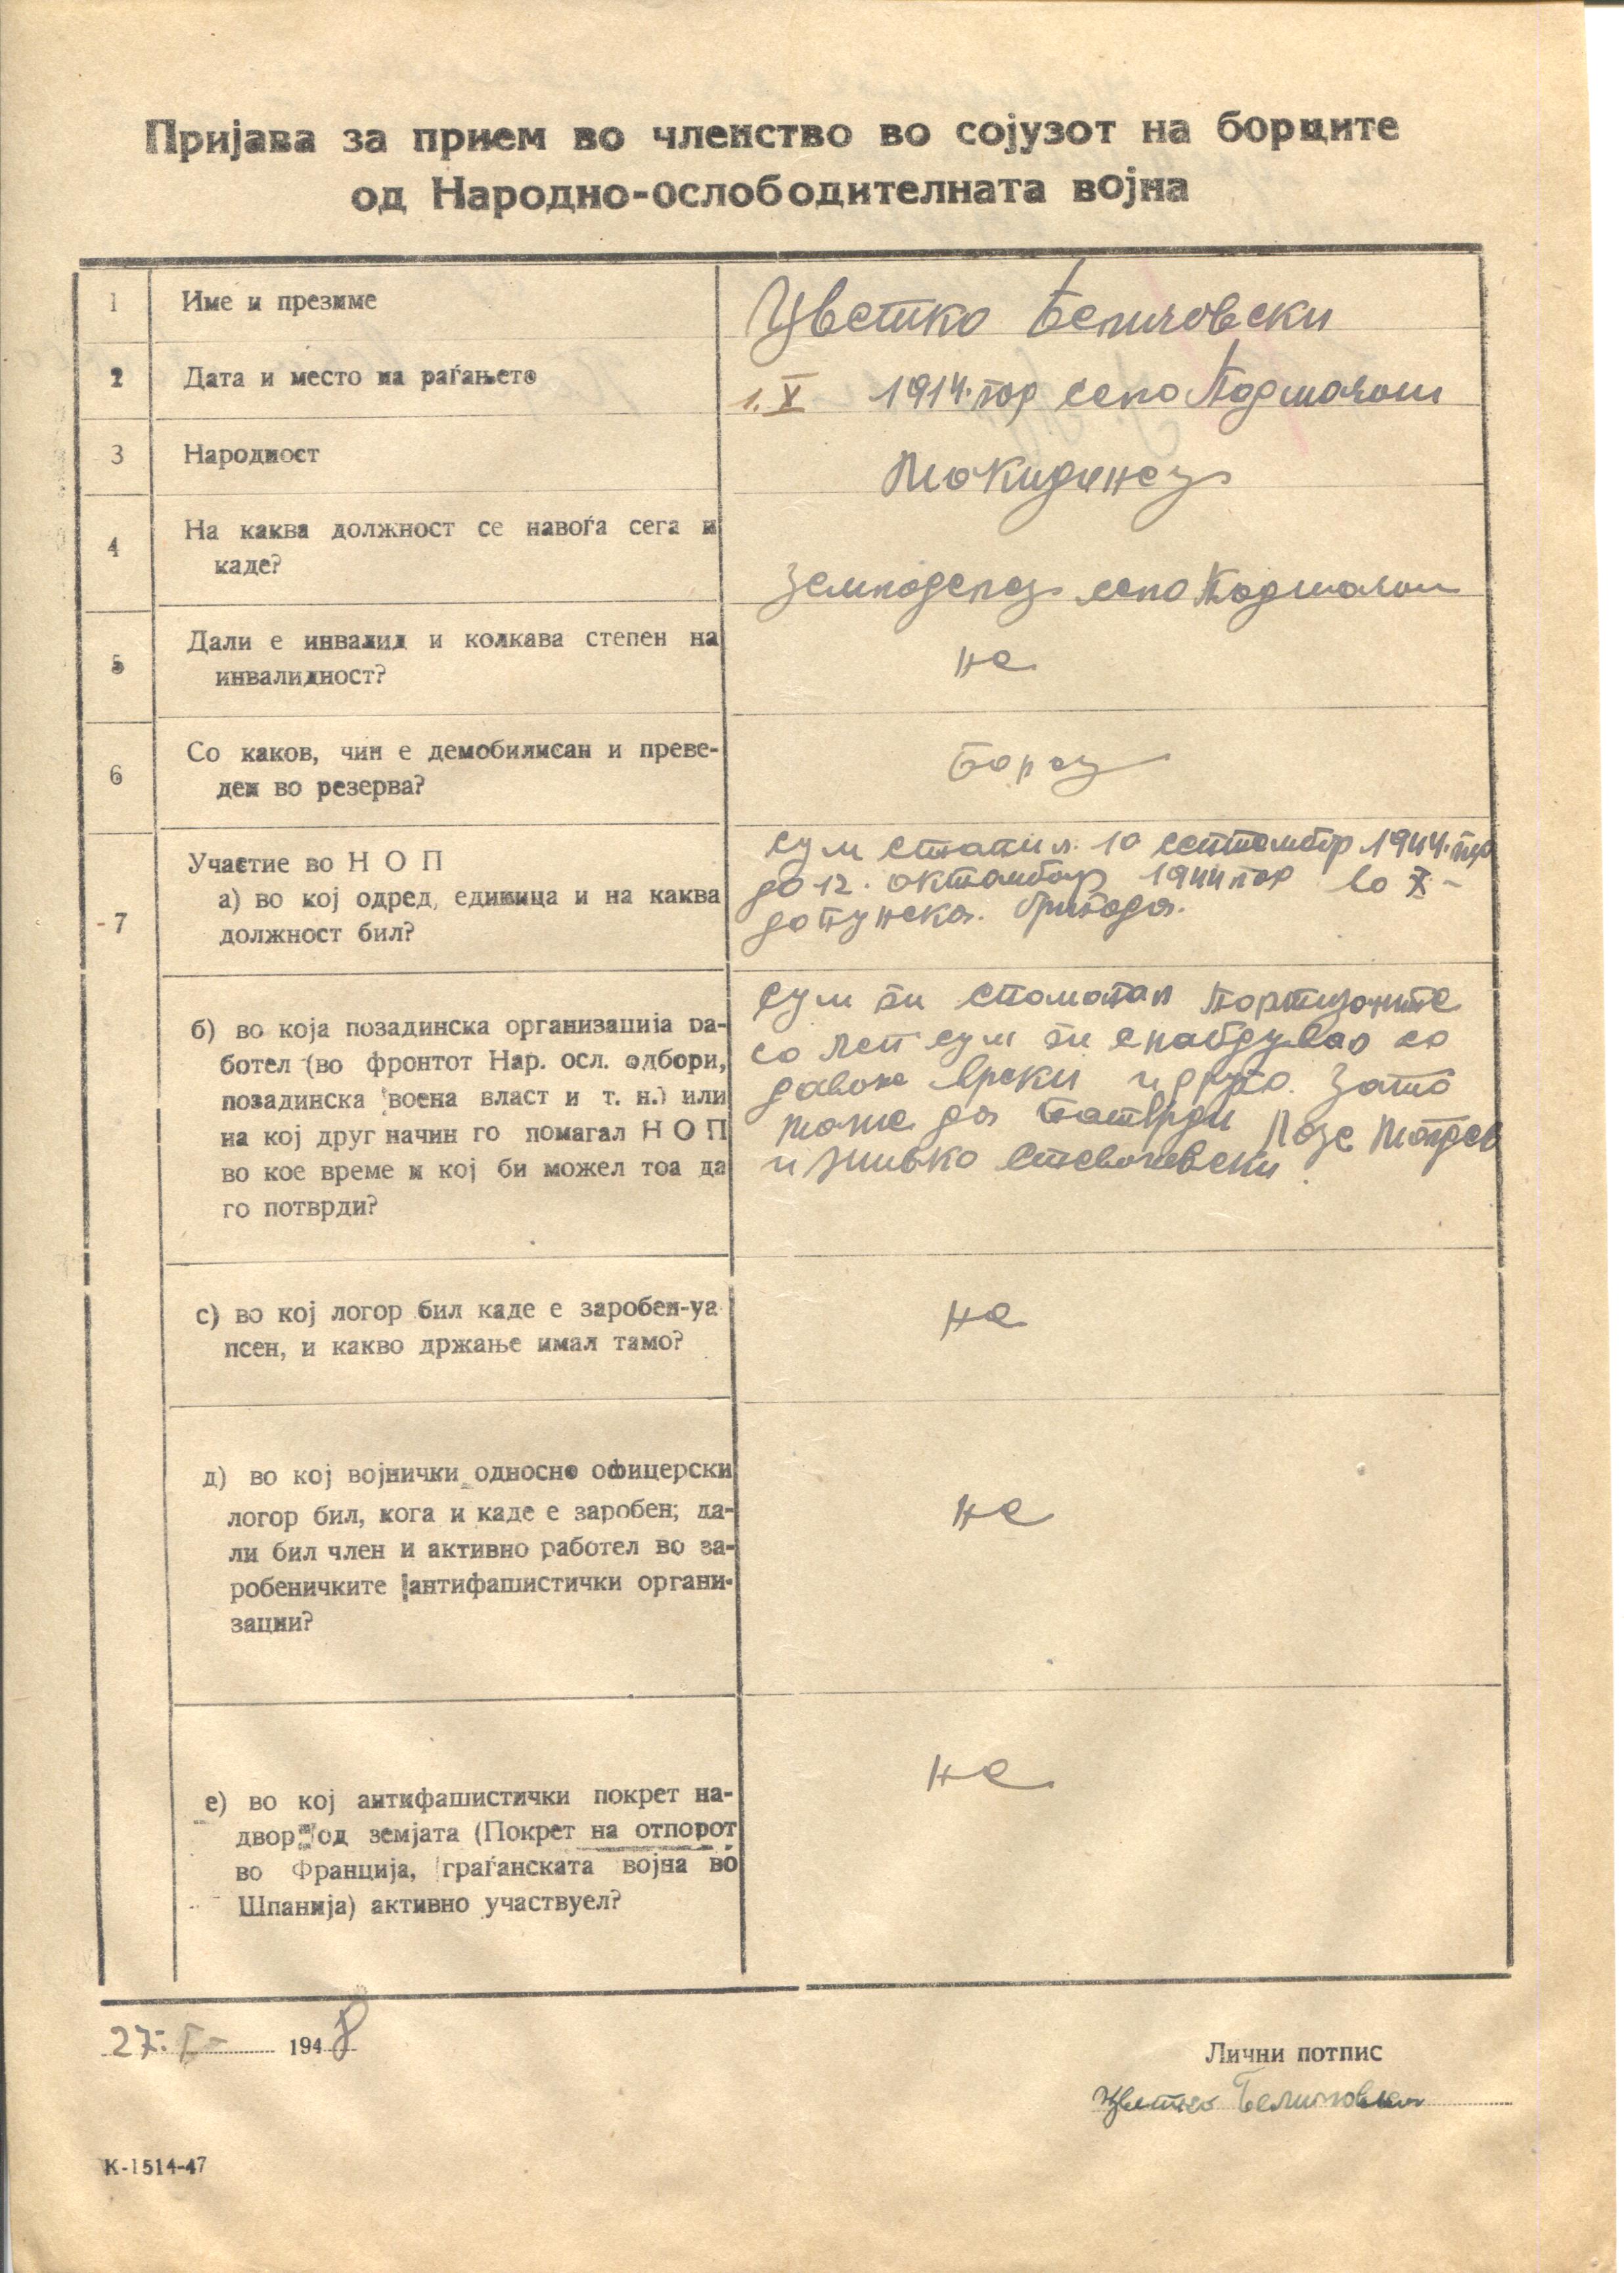 Пријава за прием во членство во сојузот на борците
од Народно-ослободителната војна
1 Име и презиме Цветко
2 Дата и место на раѓањето 1.X 1914 год село
3 Народност
4 На каква должност се навоѓа сега и
каде?
село
5 Дали е инвалид и колкава степен на
инвалидност?
не
6 Со каков, чин е демобилисан и преве-
ден во резерва?
борец
7 Участие во Н О П
а) во кој одред, единица и на каква
должност бил?
сум стапил 10 1944
до 12. 1944 год во X-
допунска.
б) во која позадинска организација ра-
ботел (во фронтот Нар. осл. одбори,
позадинска воена власт и т. н.) или
на кој друг начин го помагал Н О П
во кое време и кој би можел тоа да
го потврди?
сум ги партизаните
со леп сум ги со
врски и друго. Зато
може да
и Живко
с) во кој логор бил каде е заробен-уа
псен, и какво држање имал тамо?
не
д) во кој војнички односно офицерски
логор бил, кога и каде е заробен; да-
ли бил член и активно работел во за-
робеничките антифашистички органи-
зации?
не
е) во кој антифашистички покрет на-
двор од земјата (Покрет на отпорот
во Франција, граѓанската војна во
Шпанија) активно участвуел?
не
27. 1948
Лични потпис
Цветко
К-1514-47